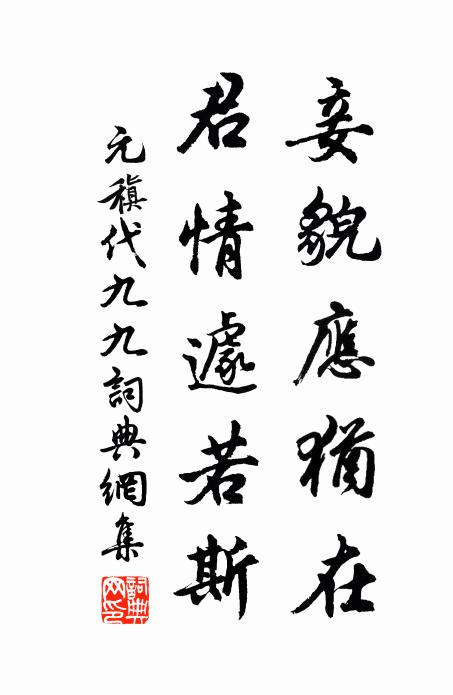 妾貌應猶在
君情遽若斯
元稹代九九詞典網集
詞典網印